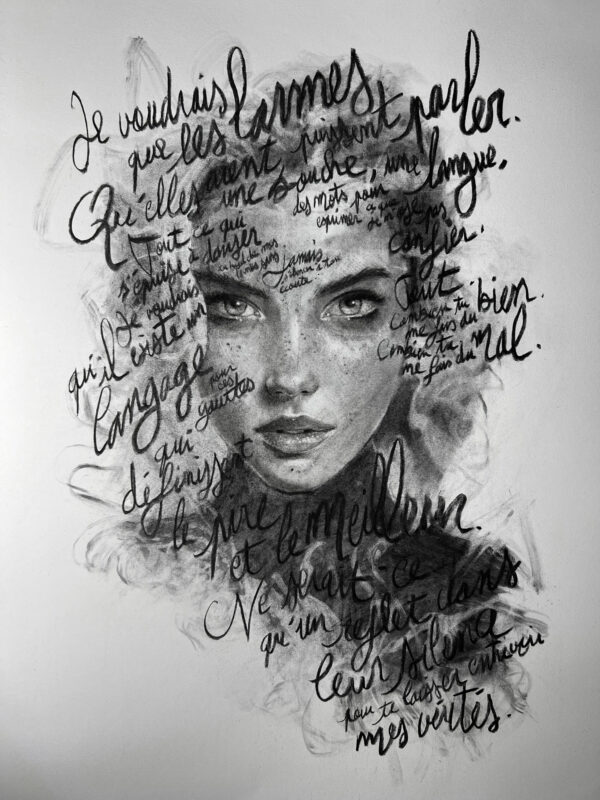 Je voudrais
que les larmes
puissent parler.
Qu'elles aient
une bouche, une langue,
des mots pour
exprimer ce que
je n'ose pas
confier.
Tout ce qui
s'épuise à danser
au bord de mes
Jamais
Je voudrais
qu'il existe un
langage
pour
ces
gouttes
qui
définissent
le pire
et le meilleur.
Tout
Combien tu
me fais du bien.
Combien tu
me fais du mal.
Ne serait-ce
qu'un reflet dans
leur silence
pour te laisser entrevoir
mes vérités.